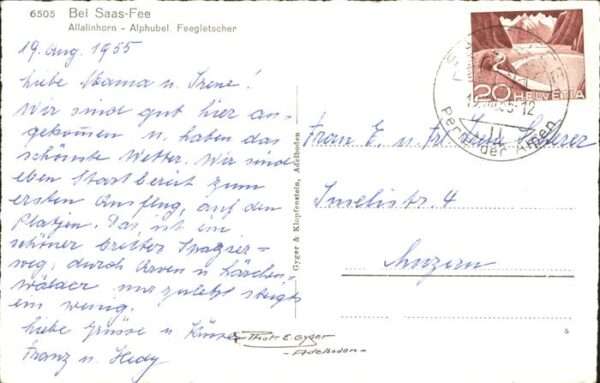 6505 Bei Saas-Fee
Allalinhorn - Alphubel Feegletscher
19. Aug. 1955
Liebe Mama u. Irene!
Wir sind gut hier an-
gekommen u. haben das
schönste Wetter. Wir sind
eben Startbereit zum
ersten Ausflug, auf den
Platjen. Das ist ein
schöner breiter Spazier=
weg, durch Arven u Lärchen
wälder nur zuletzt steigts
ein wenig.
Liebe Grüsse u Küsse
Franz u. Hedy
Gyger & Klopfenstein, Adelboden
Phot. E. Gyger
- Adelboden -
20 HELVETIA
12
Perle der Alpen
Frau E. u. Frl.
Inselistr. 4
Luzern